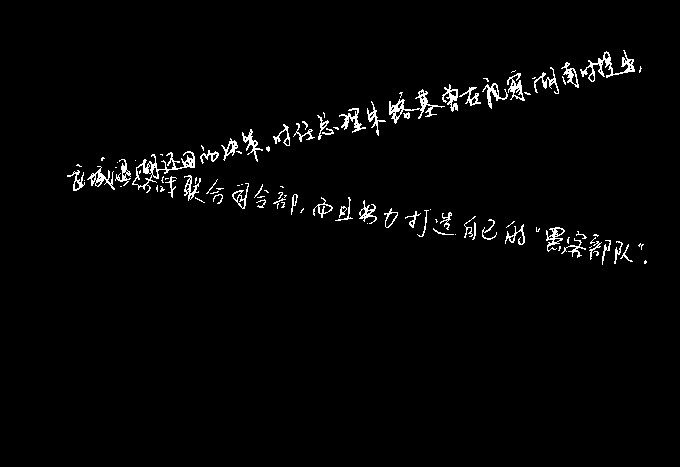 还田的决策。时任总理朱镕基曾在视察湖南时提出,
联合司令部,而且努力打造自己的“黑客部队”.